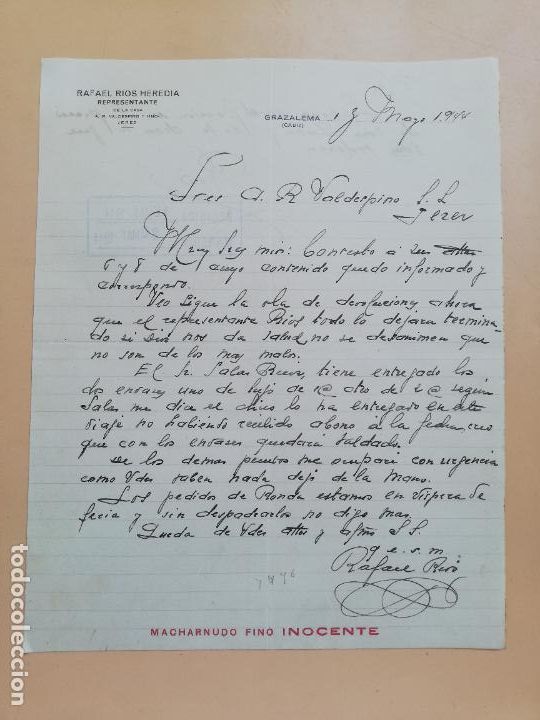 RAFAEL RIOS HEREDIA
REPRESENTANTE
DE LA CASA
A. R. VALDESPINO Y HNO.
JEREZ
GRAZALEMA 1 Mayo 1.944
Sres A. R Valdespino S. L
Jerez
Muy Sres mios: Contesto a
6 y 8 de cuyo contenido quedo informado y
correspondo.
Veo sigue la ola de devoluciones y ahora
que el representante Rios todo lo dejara termina-
do si Dios nos da salud, no se desanimen que
no son de los muy malos.
El Sr. Salas tiene entregado los
dos envases uno de hijo de 1@ otro de 2@ segun
Salas me dice el chico lo ha entregado en este
viaje no habiendo recibido abono a la fecha, creo
que con los envases quedará saldado.
de los demas puntos me ocupare con urgencia
como Vdes saben nada deje de la mano.
Los pedidos de Ronda estamos en vispera de
feria y sin despacharlos no digo mas.
Queda de Vdes atto y afmo S. S.
q. e. s. m.
Rafael Rios
MACHARNUDO FINO INOCENTE
todocoleccion